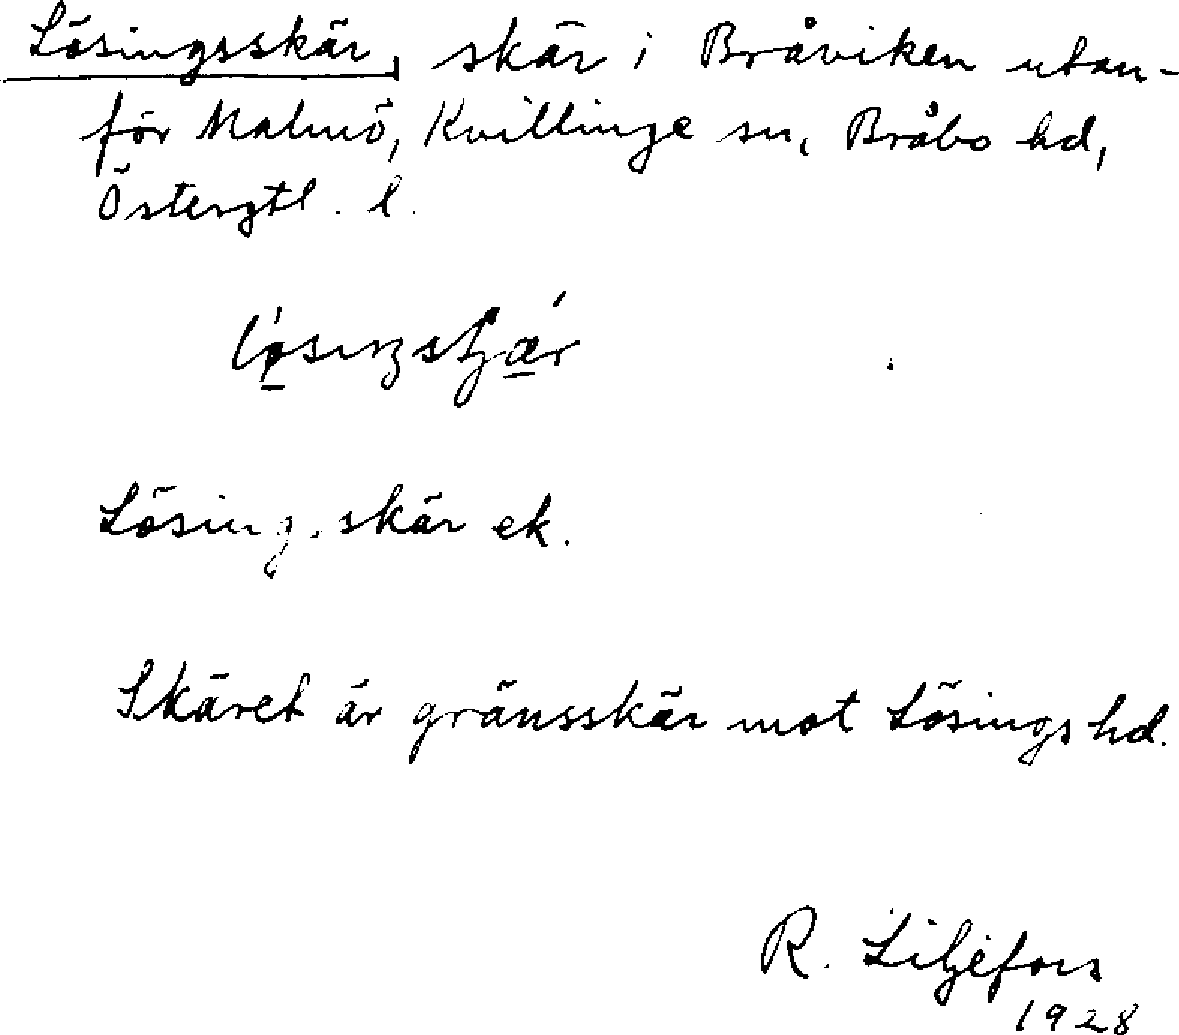 Lösingsskär, skär i Bråviken utan-
för Malmö, Kvillinge sn, Bråbo hd,
Östergtl. l.
Lösingsskär ek.
Skäret är gränsskär mot Lösings hd.
R. Liljefors
1928